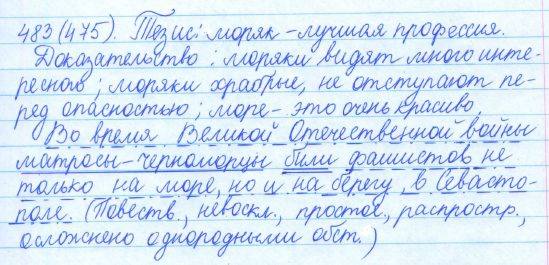 483 (475). Тезис: моряк – лучшая профессия.
Доказательство: моряки видят много инте-
ресного; моряки храбрые, не отступают пе-
ред опасностью; море – это очень красиво.
Во время Великой Отечественной войны
матросы – черноморцы били фашистов не
только на море, но и на берегу, в Севасто-
поле. (Повеств., невоскл., простое, распростр.,
осложнено однородными обст.)